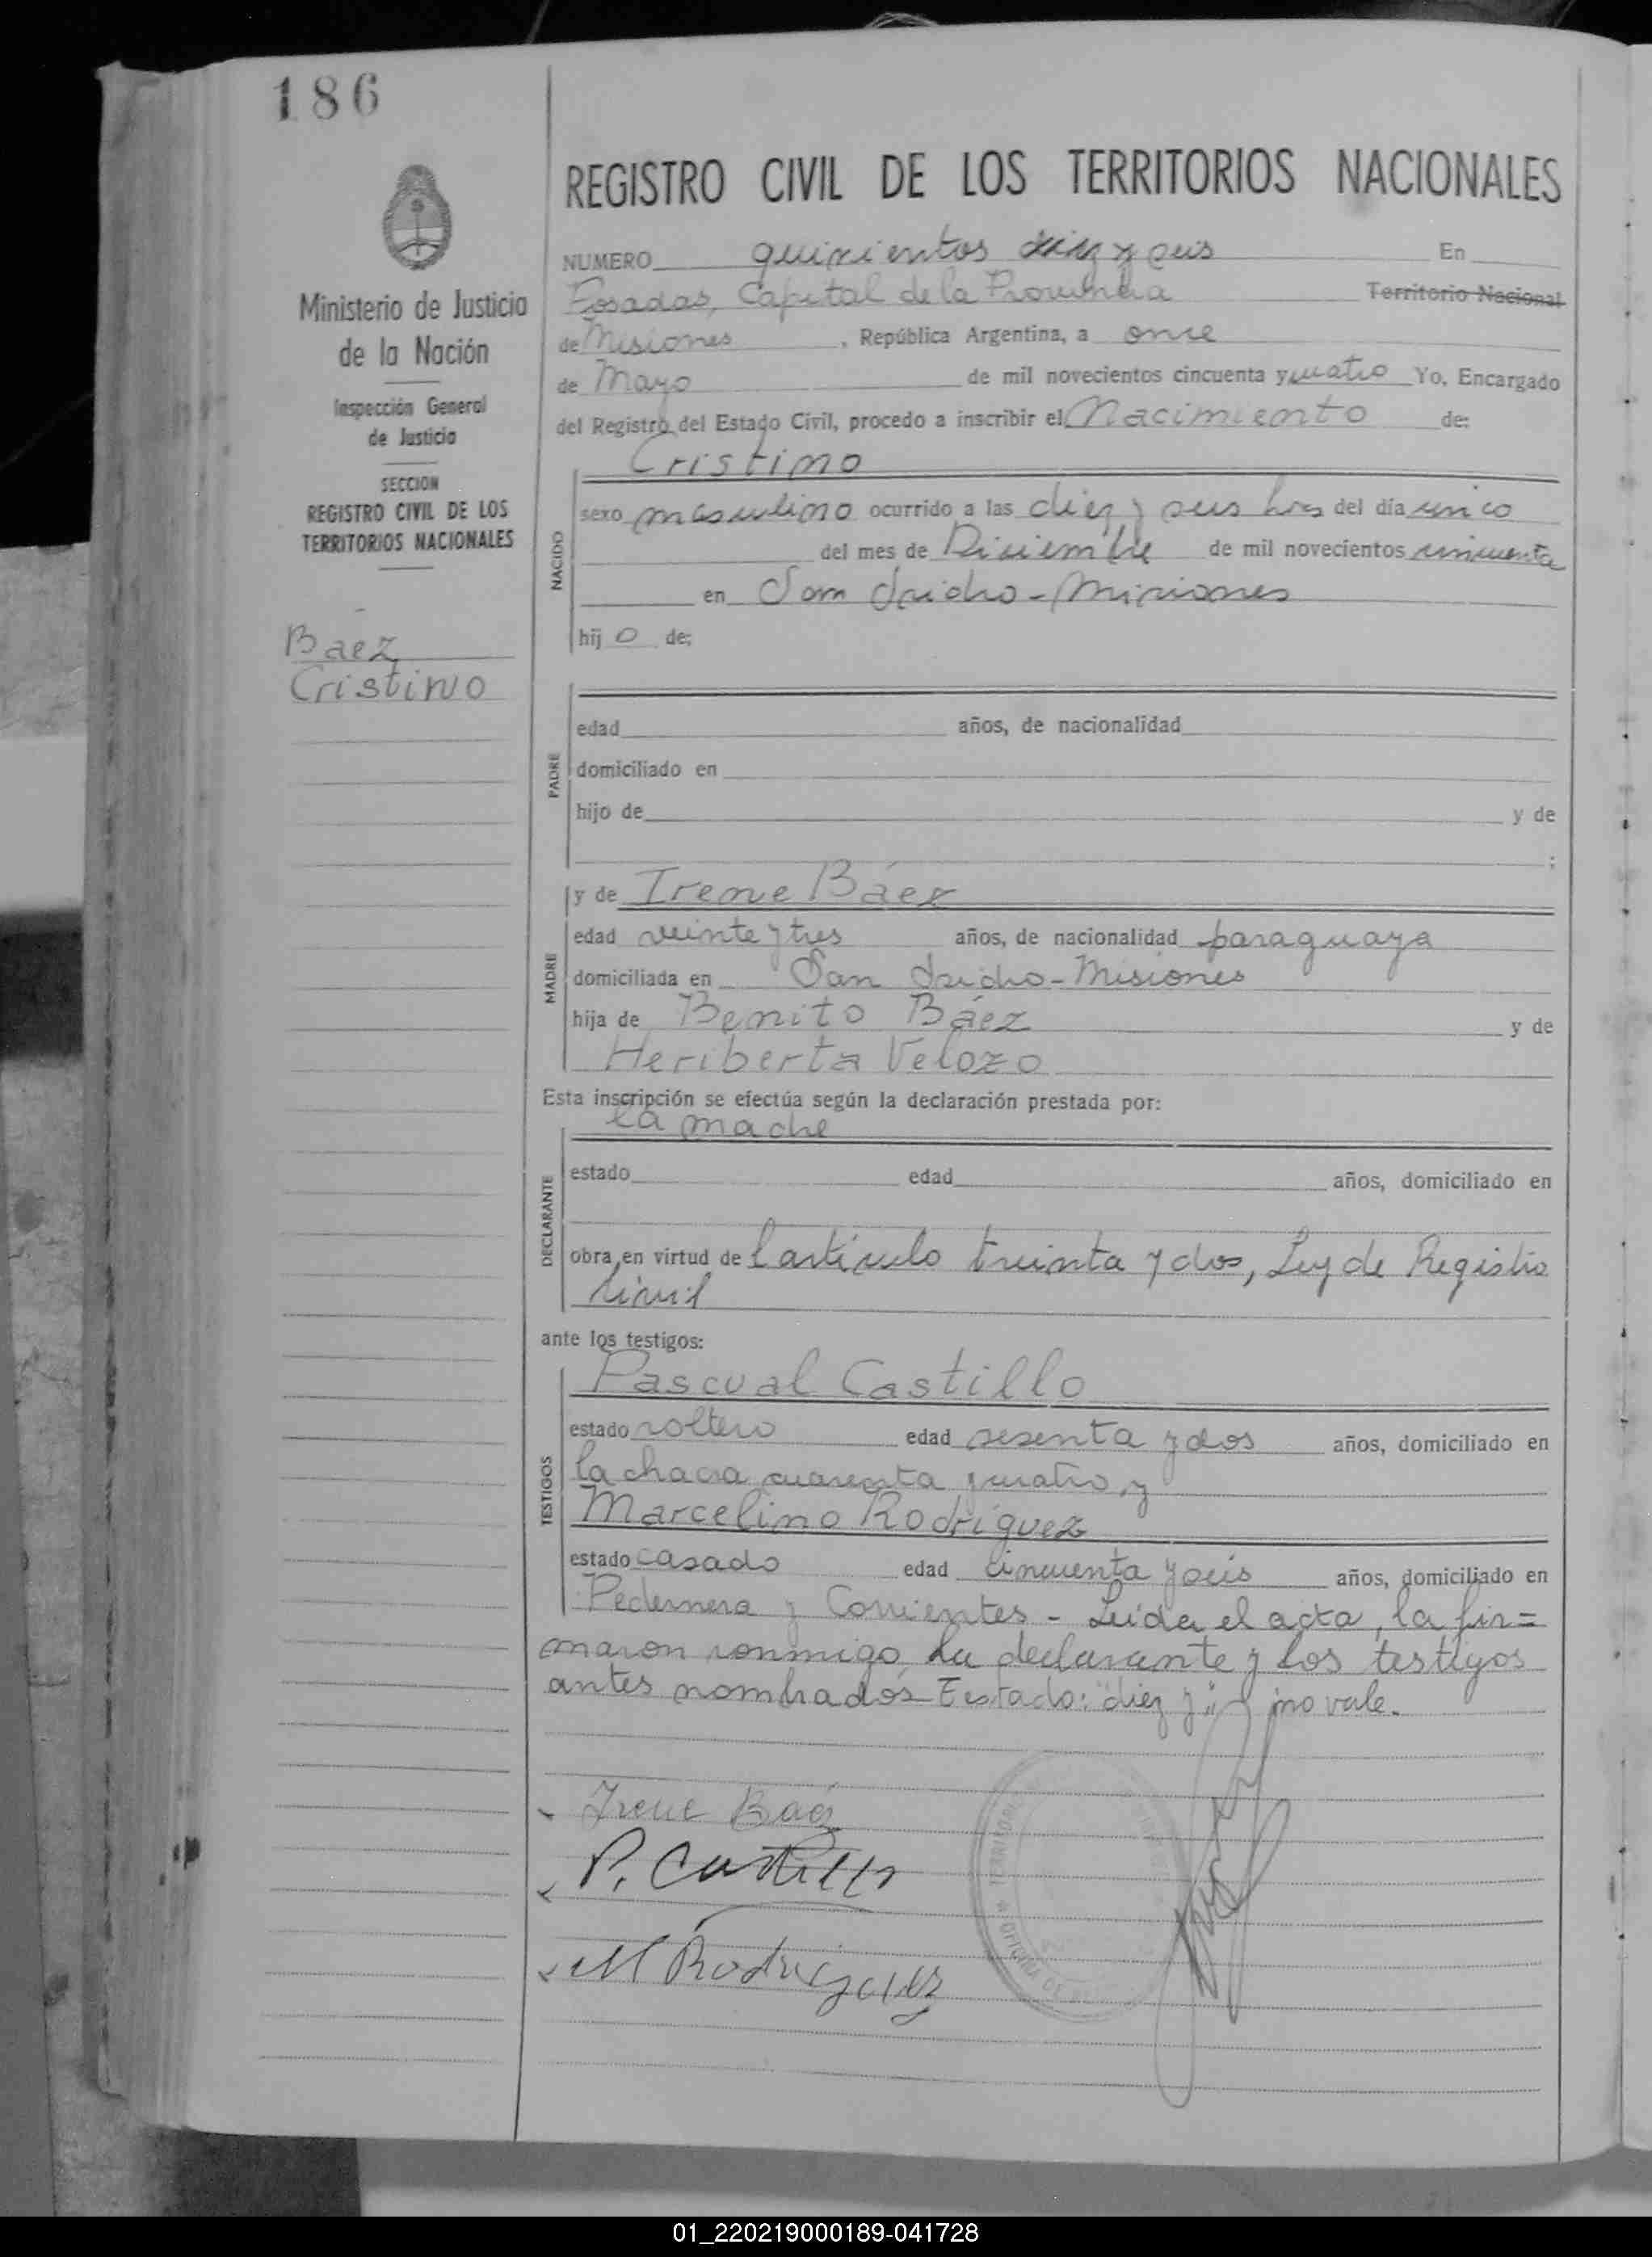 186
REGISTRO CIVIL DE LOS TERRITORIOS NACIONALES
NUMERO quinientos diez y seis En
Posadas, Capital de la Provincia Territorio Nacional
de Misiones, República Argentina, a once
de Mayo de mil novecientos cincuenta y cuatro Yo, Encargado
del Registro del Estado Civil, procedo a inscribir el Nacimiento de:
Ministerio de Justicia
de la Nación
Inspección General
de Justicia
SECCION
REGISTRO CIVIL DE LOS
TERRITORIOS NACIONALES
Baez
Cristino
NACIDO
Cristino
sexo masculino ocurrido a las diez y seis hrs del día cinco
del mes de Diciembre de mil novecientos cincuenta
en San Isidro - Misiones
hij o de:
PADRE
edad años, de nacionalidad
domiciliado en
hijo de y de
:
MADRE
y de Irene Báez
edad veinte y tres años, de nacionalidad paraguaya
domiciliada en San Isidro - Misiones
hija de Benito Báez y de
Heriberta Velozo
Esta inscripción se efectúa según la declaración prestada por:
DECLARANTE
la madre
estado edad años, domiciliado en
obra en virtud de l artículo treinta y dos, Ley de Registro
Civil
ante los testigos:
TESTIGOS
Pascual Castillo
estado soltero edad sesenta y dos años, domiciliado en
la chacra cuarenta y cuatro, y
Marcelino Rodríguez
estado casado edad cincuenta y seis años, domiciliado en
Pedernera y Corrientes - Leída el acta, la fir=
maron conmigo, la declarante y los testigos
antes nombrados - Testado: "diez y": no vale.
Irene Baéz
P. Castillo
M Rodriguez
01_220219000189-041728